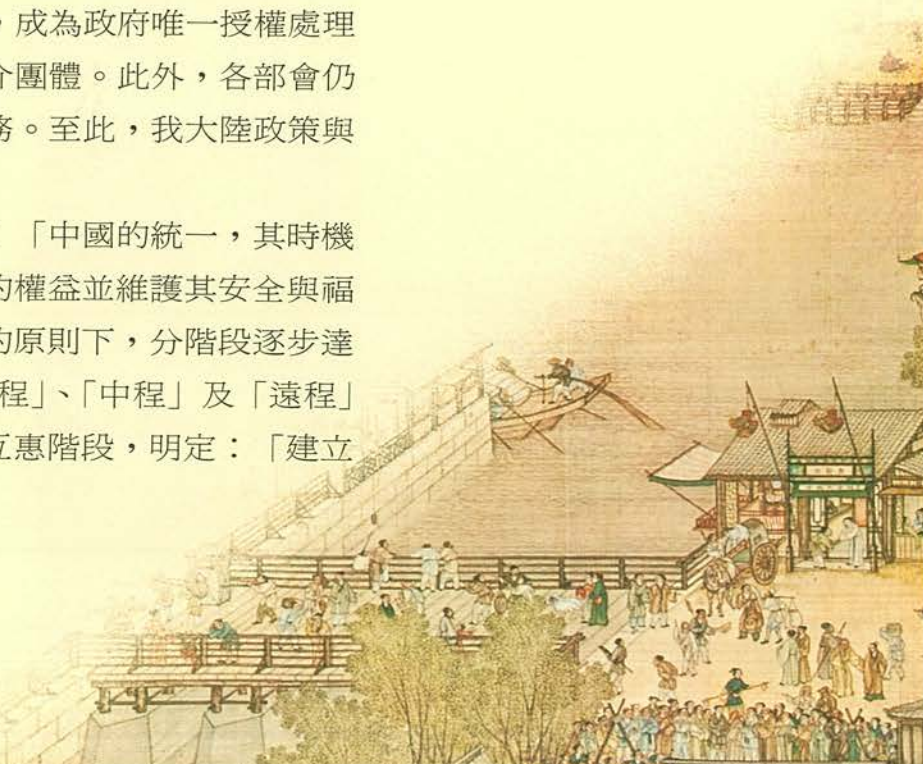 ，成為政府唯一授權處理
介團體。此外，各部會仍
務。至此，我大陸政策與
「中國的統一，其時機
的權益並維護其安全與福
的原則下，分階段逐步達
程」、「中程」及「遠程」
互惠階段，明定：「建立